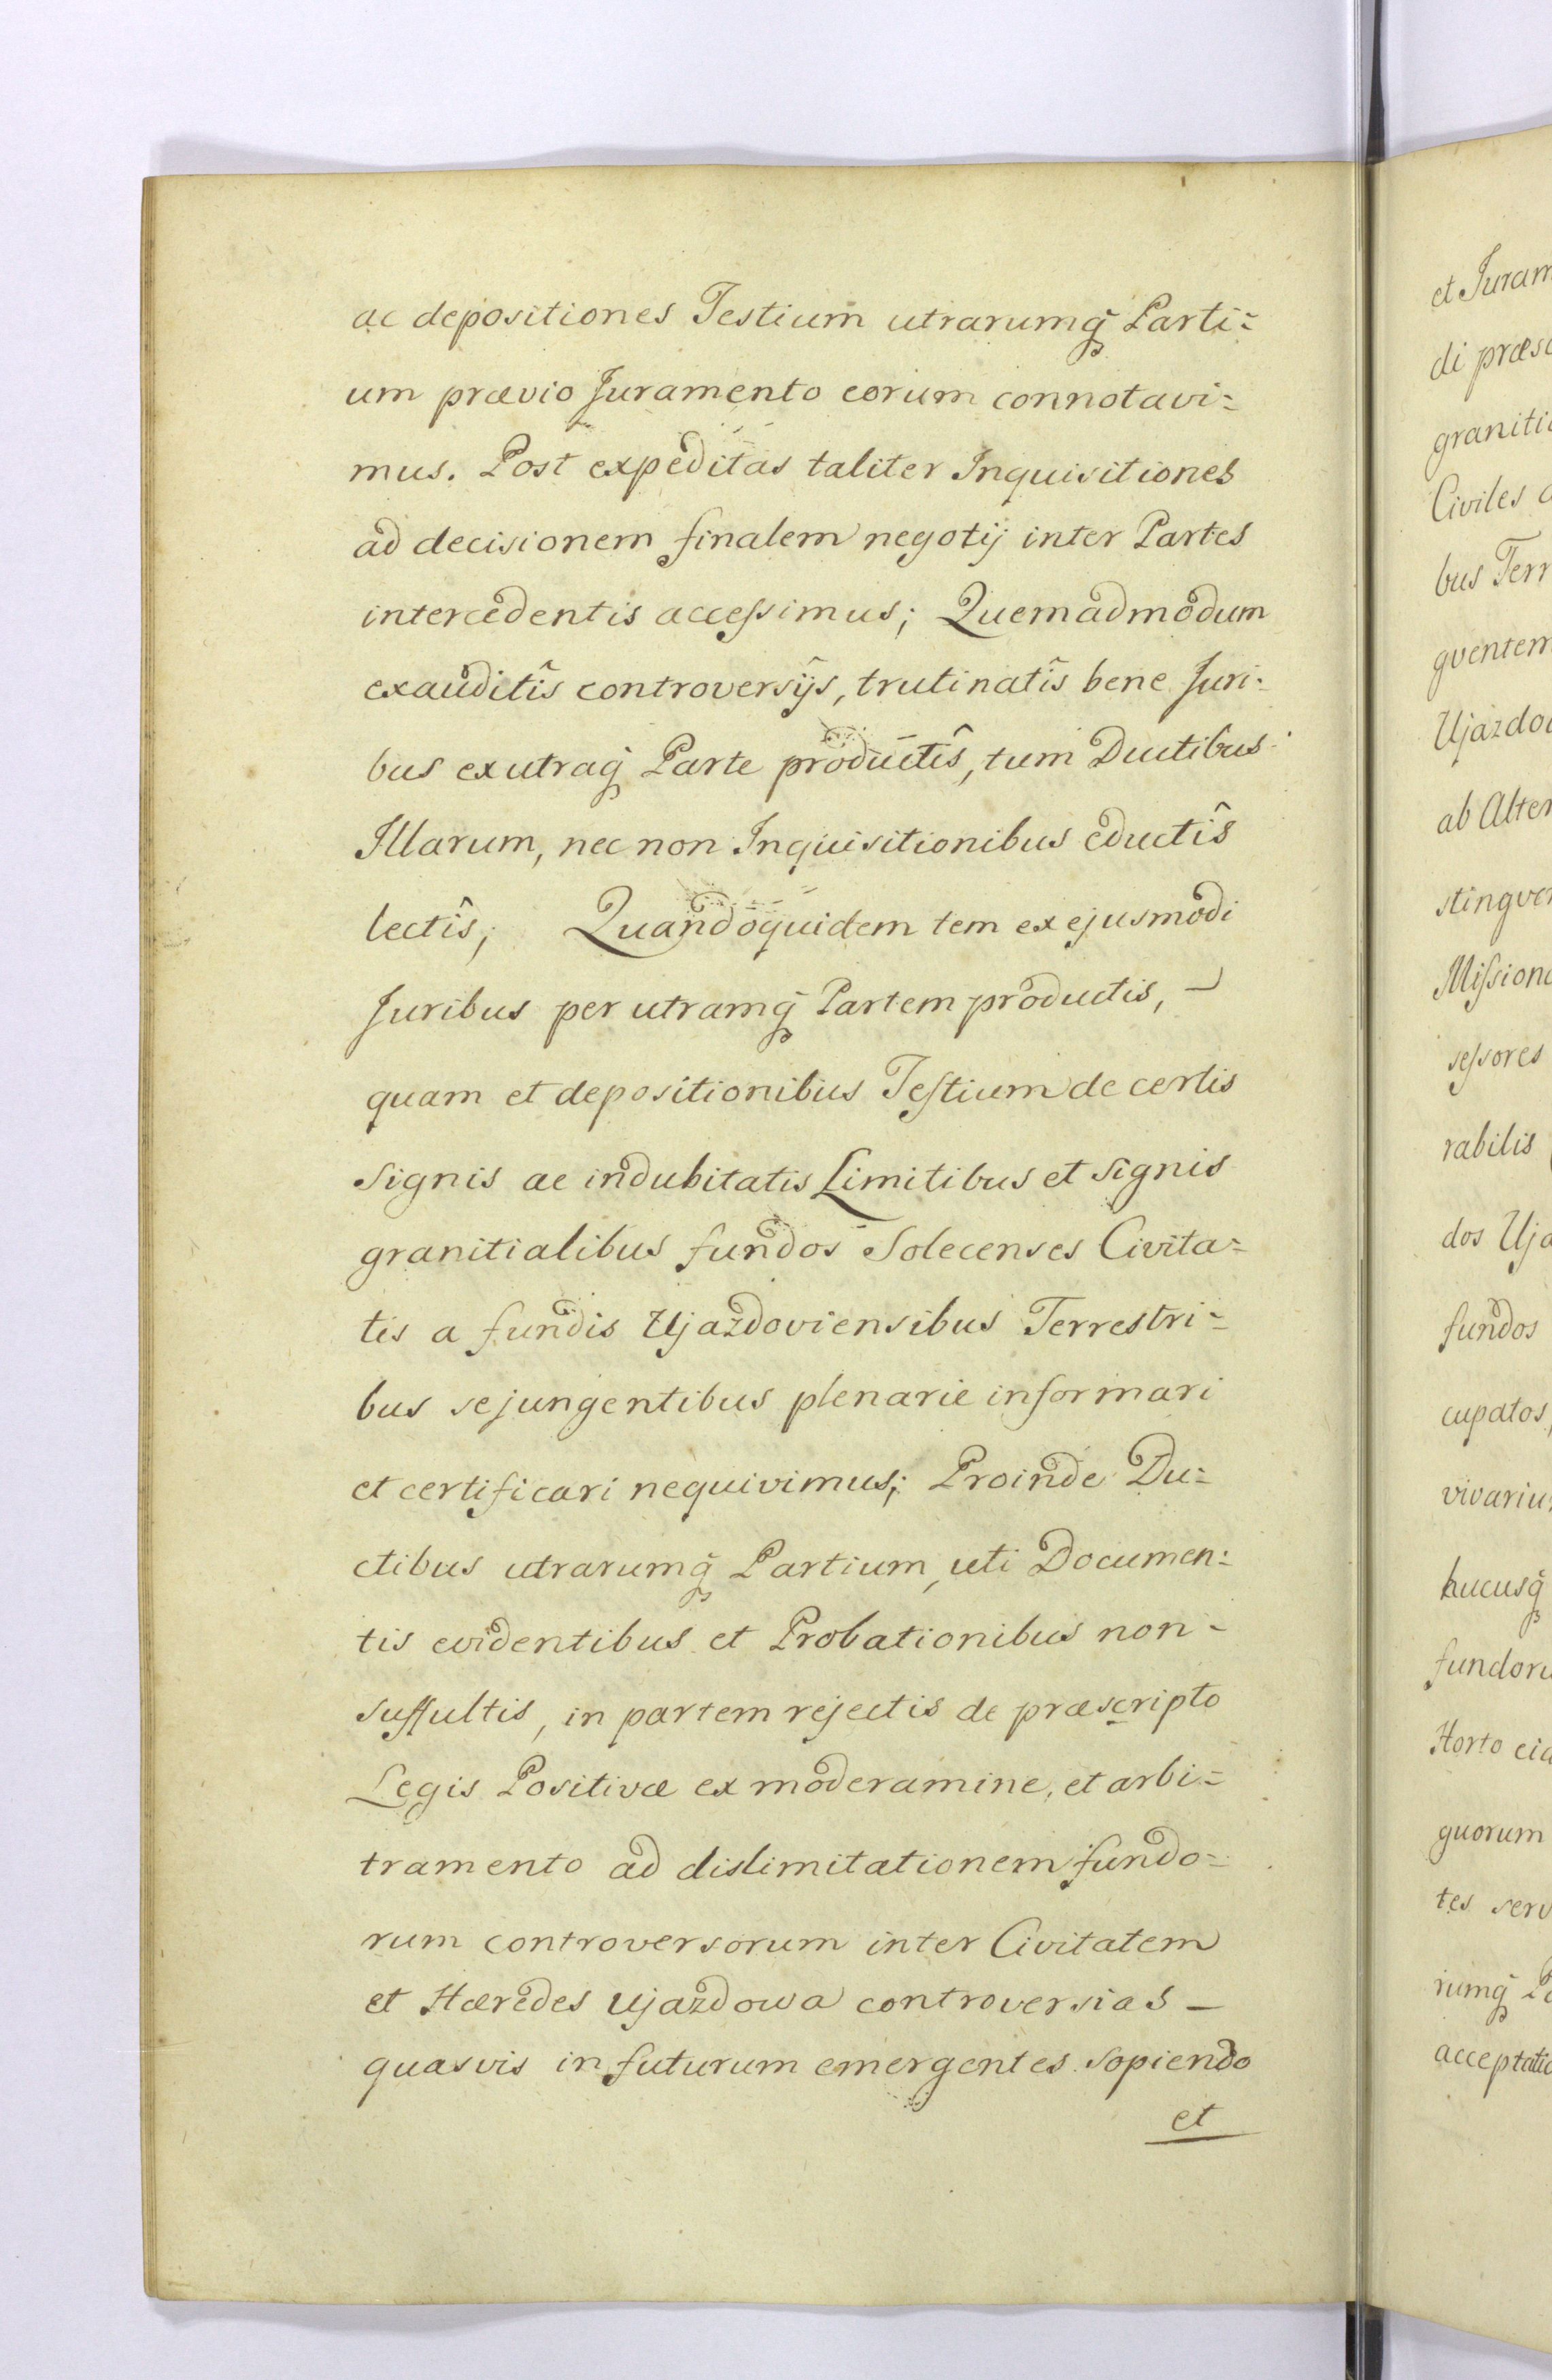 ac depositiones Testium utrarumq̃ Parti=
um prævio Juramento eorum connotavi=
mus. Post expeditas taliter Inquisitiones
ad decisionem finalem negotij inter Partes
intercedentis accessimus; Quemadmodum
exauditîs controversijs, trutinatîs bene Juri=
bus ex utraq̃ Parte productîs, tum Ductibus
Illarum, nec non Inquisitionibus eductîs
lectîs; Quandoquidem tem ex ejusmodi
Juribus per utramq̃ Partem productis, –
quam et depositionibus Testium de certis
signis ac indubitatis Limitibus et signis
granitialibus fundos Solecenses Civita=
tis a fundis Ujazdoviensibus Terrestri=
bus sejungentibus plenarie informari
et certificari nequivimus; Proinde Du=
ctibus utrarumq̃ Partium, uti Documen=
tis evidentibus et Probationibus non –
suffultis, in partem rejectis de præscripto
Legis Positivæ ex moderamine, et arbi=
tramento ad dislimitationem fundo=
rum controversorum inter Civitatem
et Hæredes Ujazdowa controversias –
quasvis in futurum emergentes sopiendo
et
et Juram
di præsc
graniti
Civiles
bus Terr
gventem
Ujazdo
ab Alter
stingver
Missiona
sessores
rabilis
dos Uja
fundos
cupatos,
vivariu
hucusq̃
fundoru
Horto
quorum
tes serv
rumq̃
acceptatio